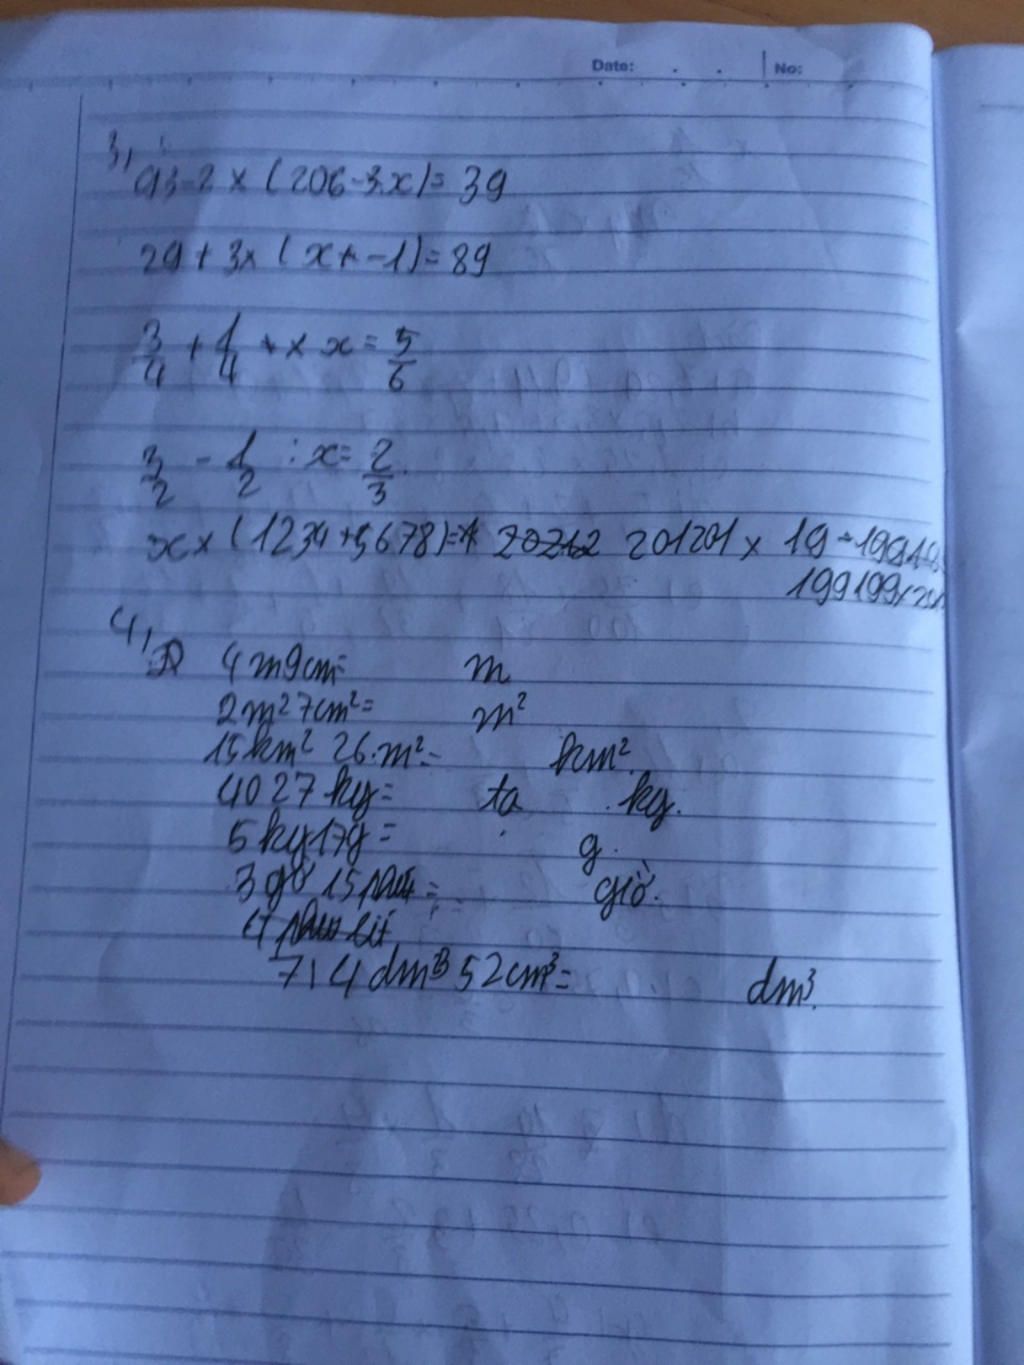 Date: . . No:
3, 93-2 × (206-3.x)= 39
29 + 3× ( x+ -1)= 89
3/4 + 1/4 × x = 5/6
3/2 - 1/2 : x = 2/3
x × (1234+5678)= 201201 × 19 -
199199
4,
4m9cm= m
2m²7cm²= m²
15km² 26.m²= km².
4027kg= tạ kg.
5kg17g= g.
3 giờ 15 phút = giờ.
714dm³52cm³= dm³.